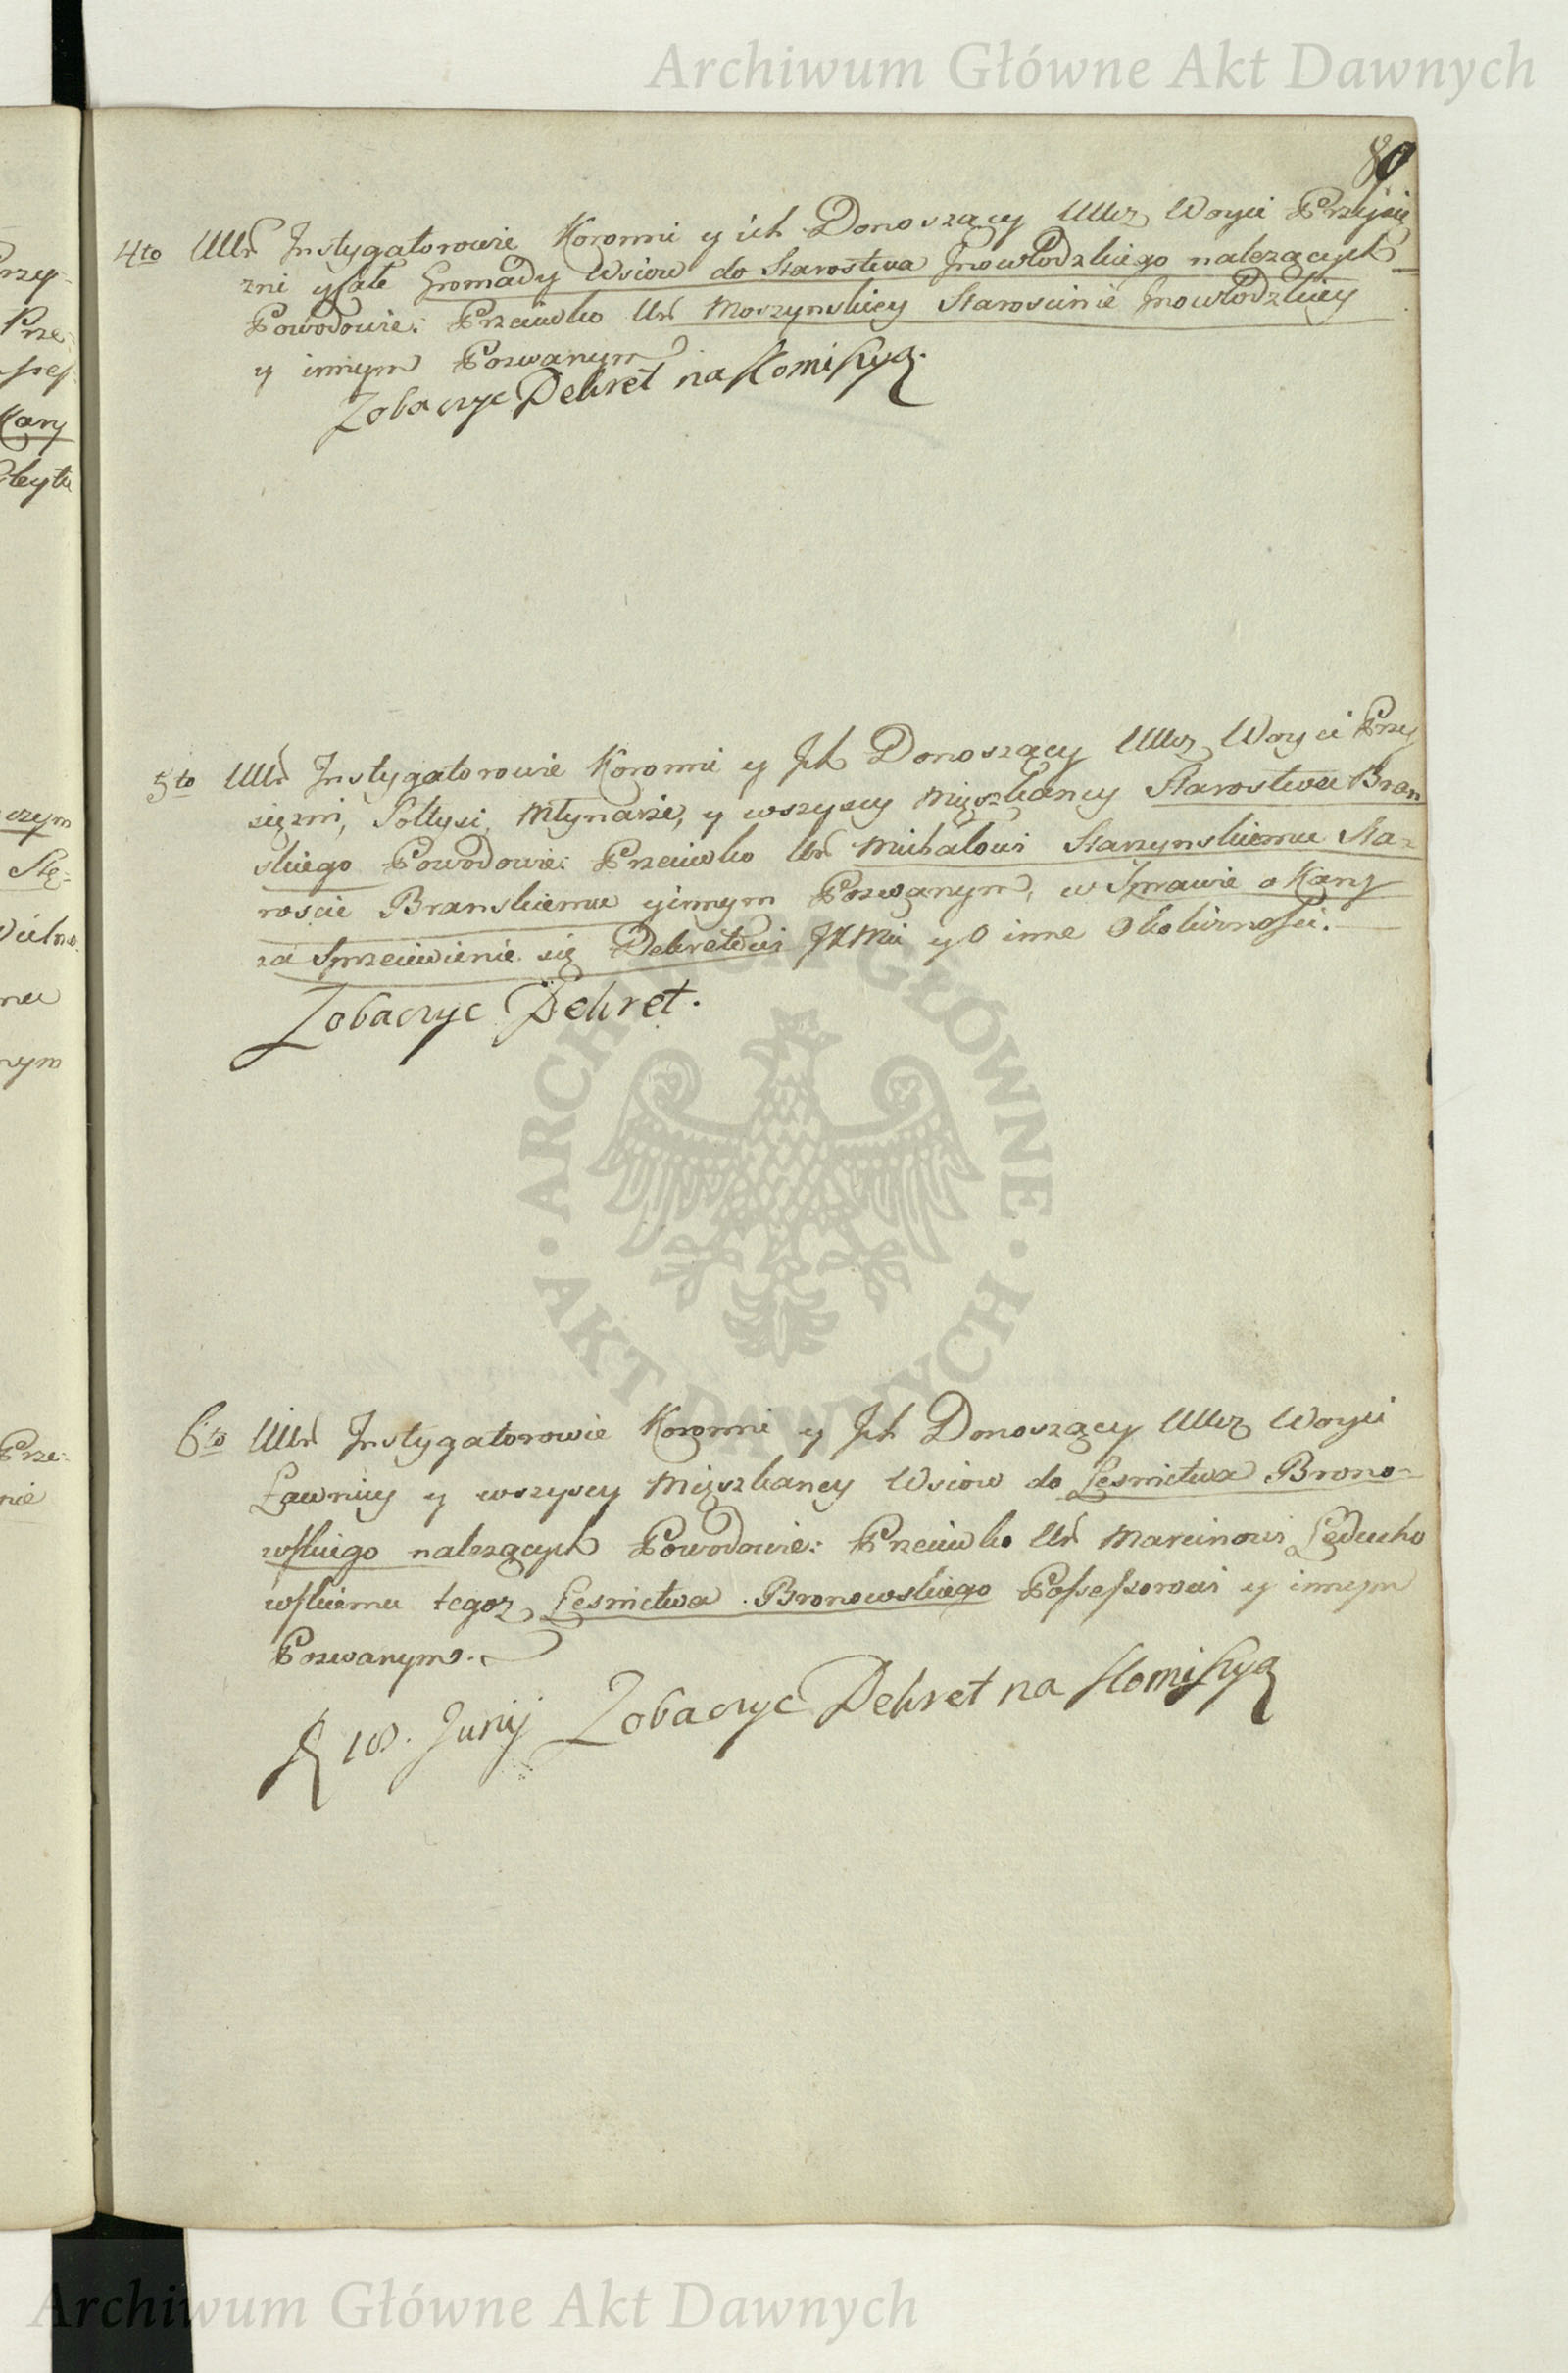 Archiwum Główne Akt Dawnych
80
4to UUr Instygatorowie Koronni y ich Donoszący UUcz Woyci Przysię
zni y całe Gromady Wsiow do Starostwa Jnowłodzkiego nalezących
Powodowie: Przeciwko Ur Moszynskiey Starościnie Jnowłodzkiey
y innym Pozwanym
Zobaczyc Dekret na Komissyą.
5to UUr Instygatorowie Koronni y Jch Donoszący UUcz Woyci Przy
sięzni, Sołtysi, Młynarze, y wszyscy Mięszkancy Starostwa Bran
skiego Powodowie: Przeciwko Ur Michałowi Starzynskiemu Sta=
roscie Branskiemu y innym Pozwanym, w Sprawie o Kary
za Sprzeciwienie się Dekretowi JKMci y o inne Okolicznosci.
Zobaczyc Dekret.
6to UUr Instygatorowie Koronni y Jch Donoszący UUcz Woyci
Ławnicy y wszyscy Mięszkancy Wsiow do Lesnictwa Brono=
wskiego nalezących Powodowie: Przeciwko Ur Marcinowi Leducho
wskiemu tegoz Lesnictwa Bronowskiego Possessorowi y innym
Pozwanym.
18. Junij Zobaczyc Dekret na Komissyą
ARCHIWUM GŁÓWNE • AKT DAWNYCH •
Archiwum Główne Akt Dawnych